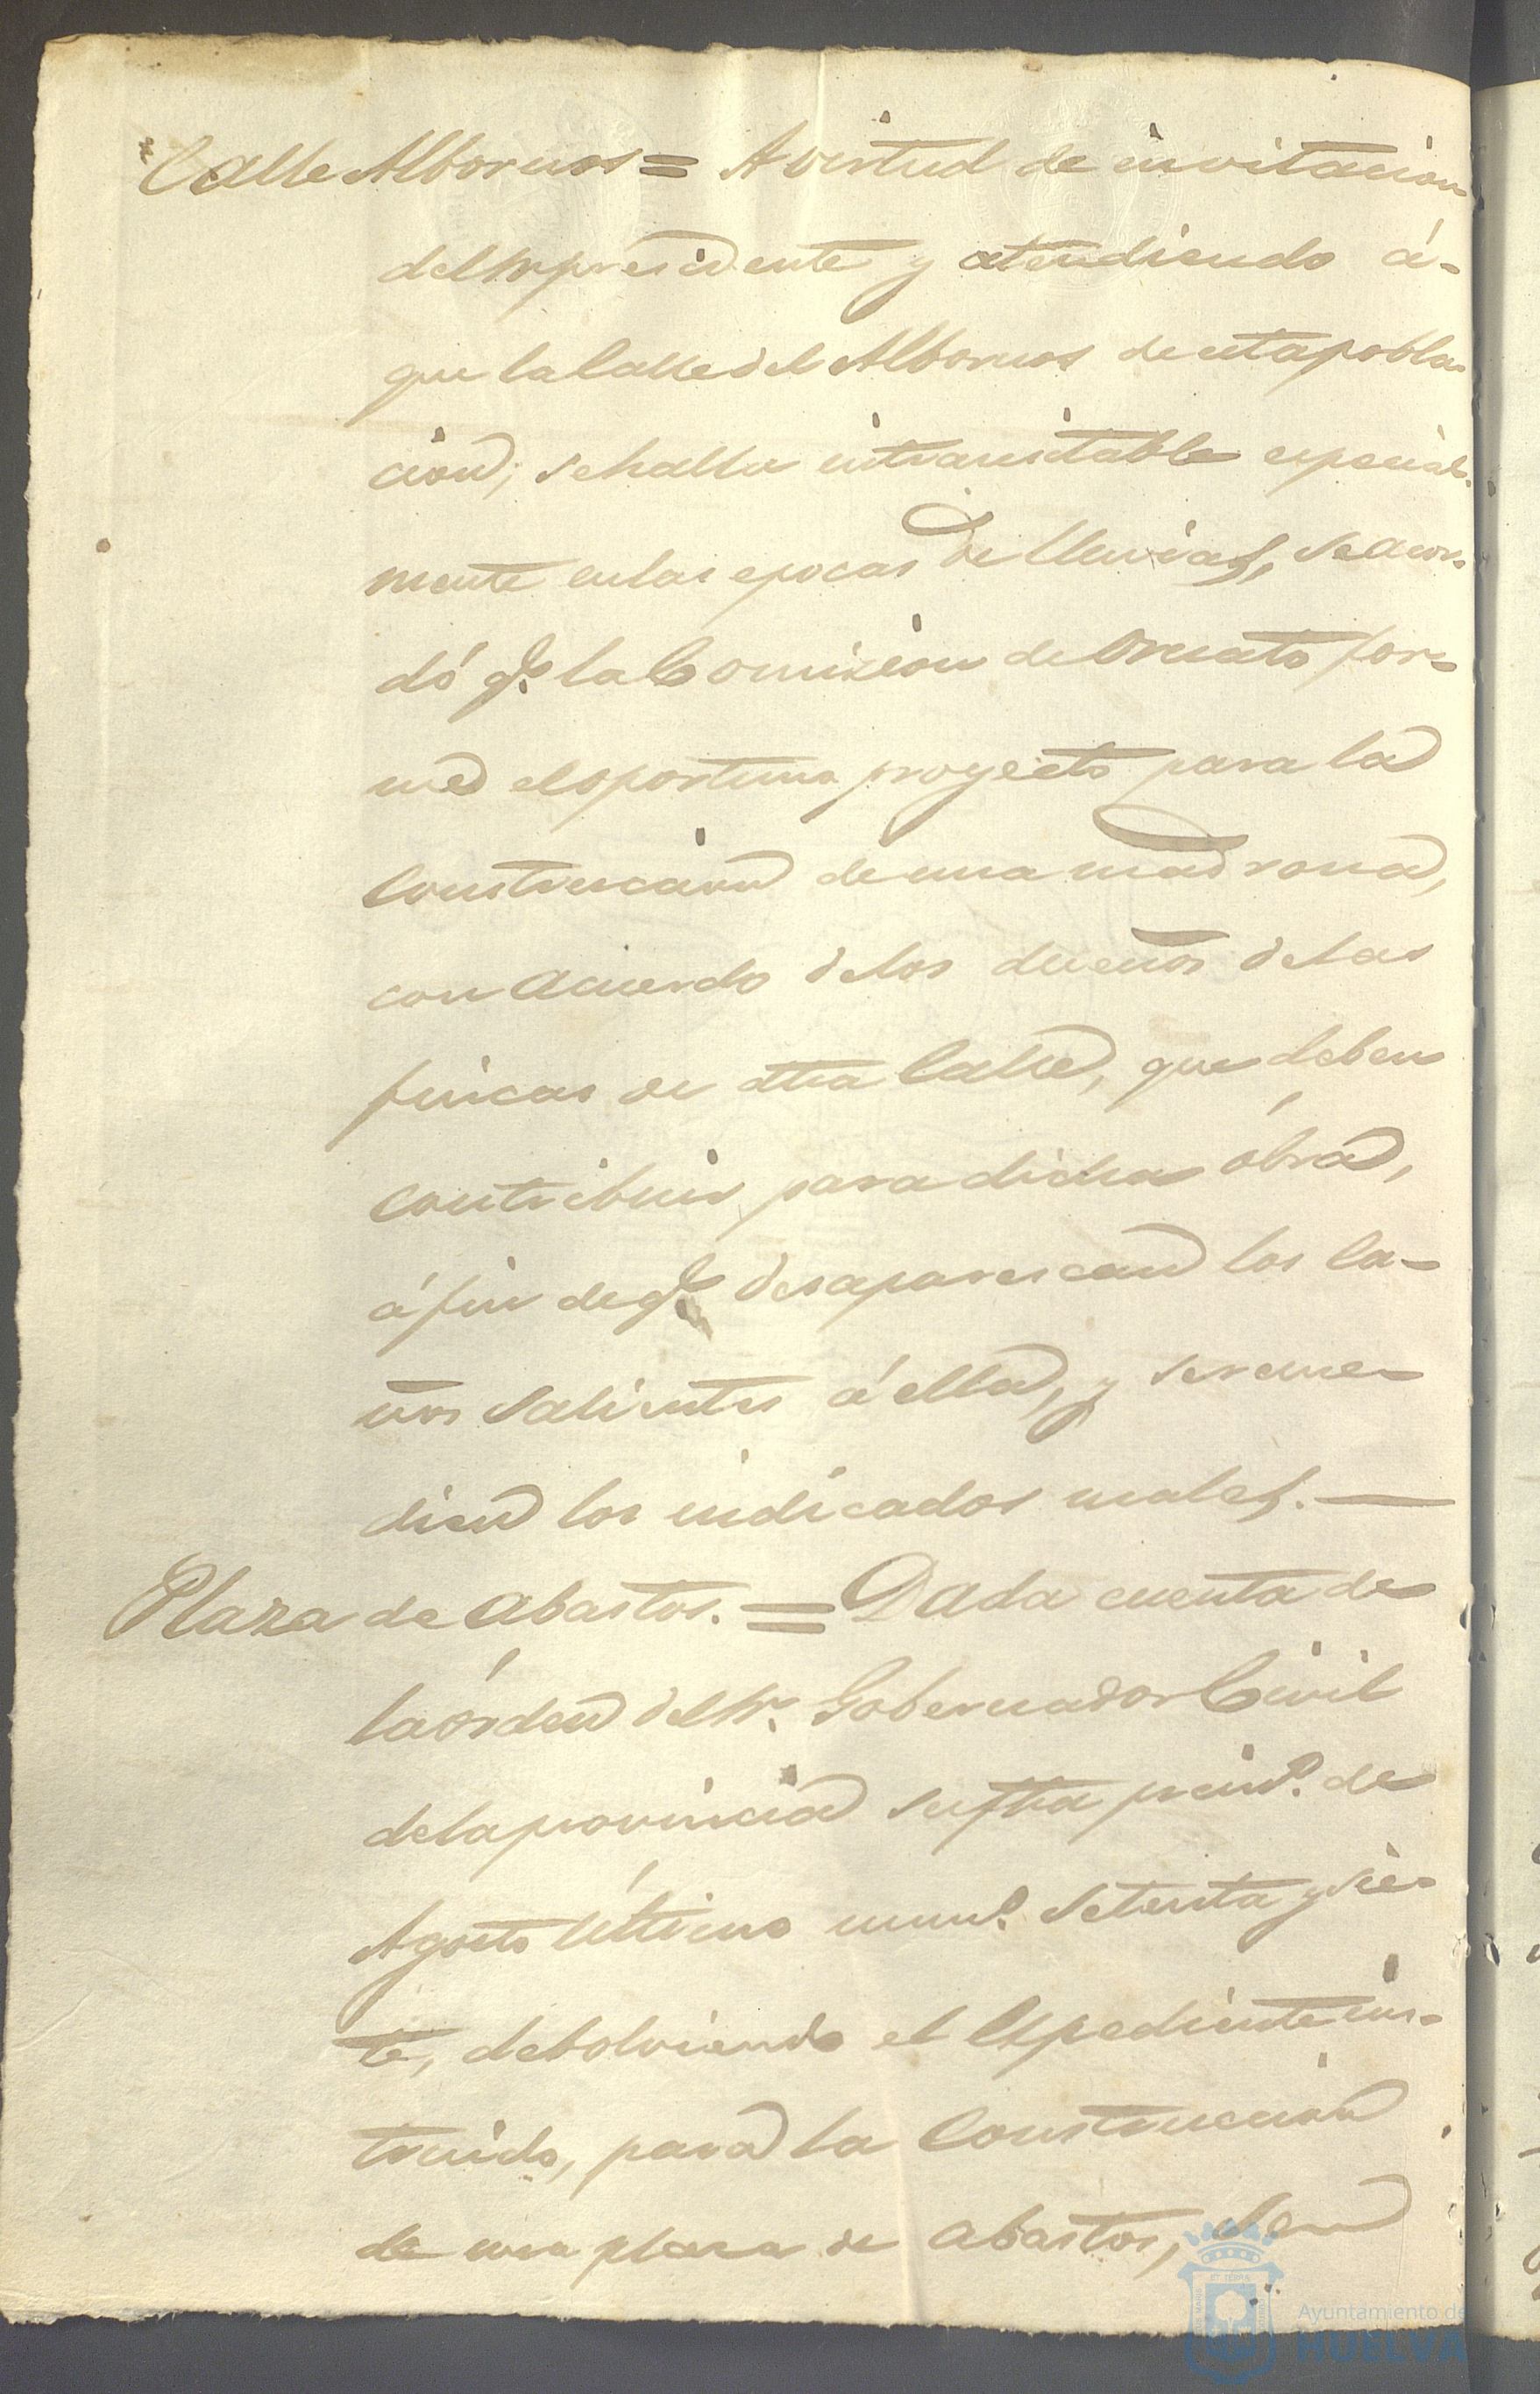 Calle Albornos = A virtud de invitacion
del Sr presidente y atendiendo á-
que la Calle del Albornos de esta pobla-
cion, se halla intransitable especial-
mente en las epocas de lluvias, se acor-
dó qe. la Comision de Ornato for-
me el oportuno proyecto para la
construccion de una madrona,
con acuerdo de los dueños de las
fincas de dha Calle, que deben
contribuir para dicha óbra,
á fin de qe. desaparescan los ca-
ños salientes á ella, y se reme-
dien los indicados males. —
Plaza de Abastos. = Dada cuenta de
la órden del Sr. Gobernador Civil
de la provincia su fha prim.o de
Agosto último num.o setenta y sie-
te, debolviendo el Espediente ins-
truido, para la Construccion
de una plaza de abastos,
Ayuntamiento de
HUELVA